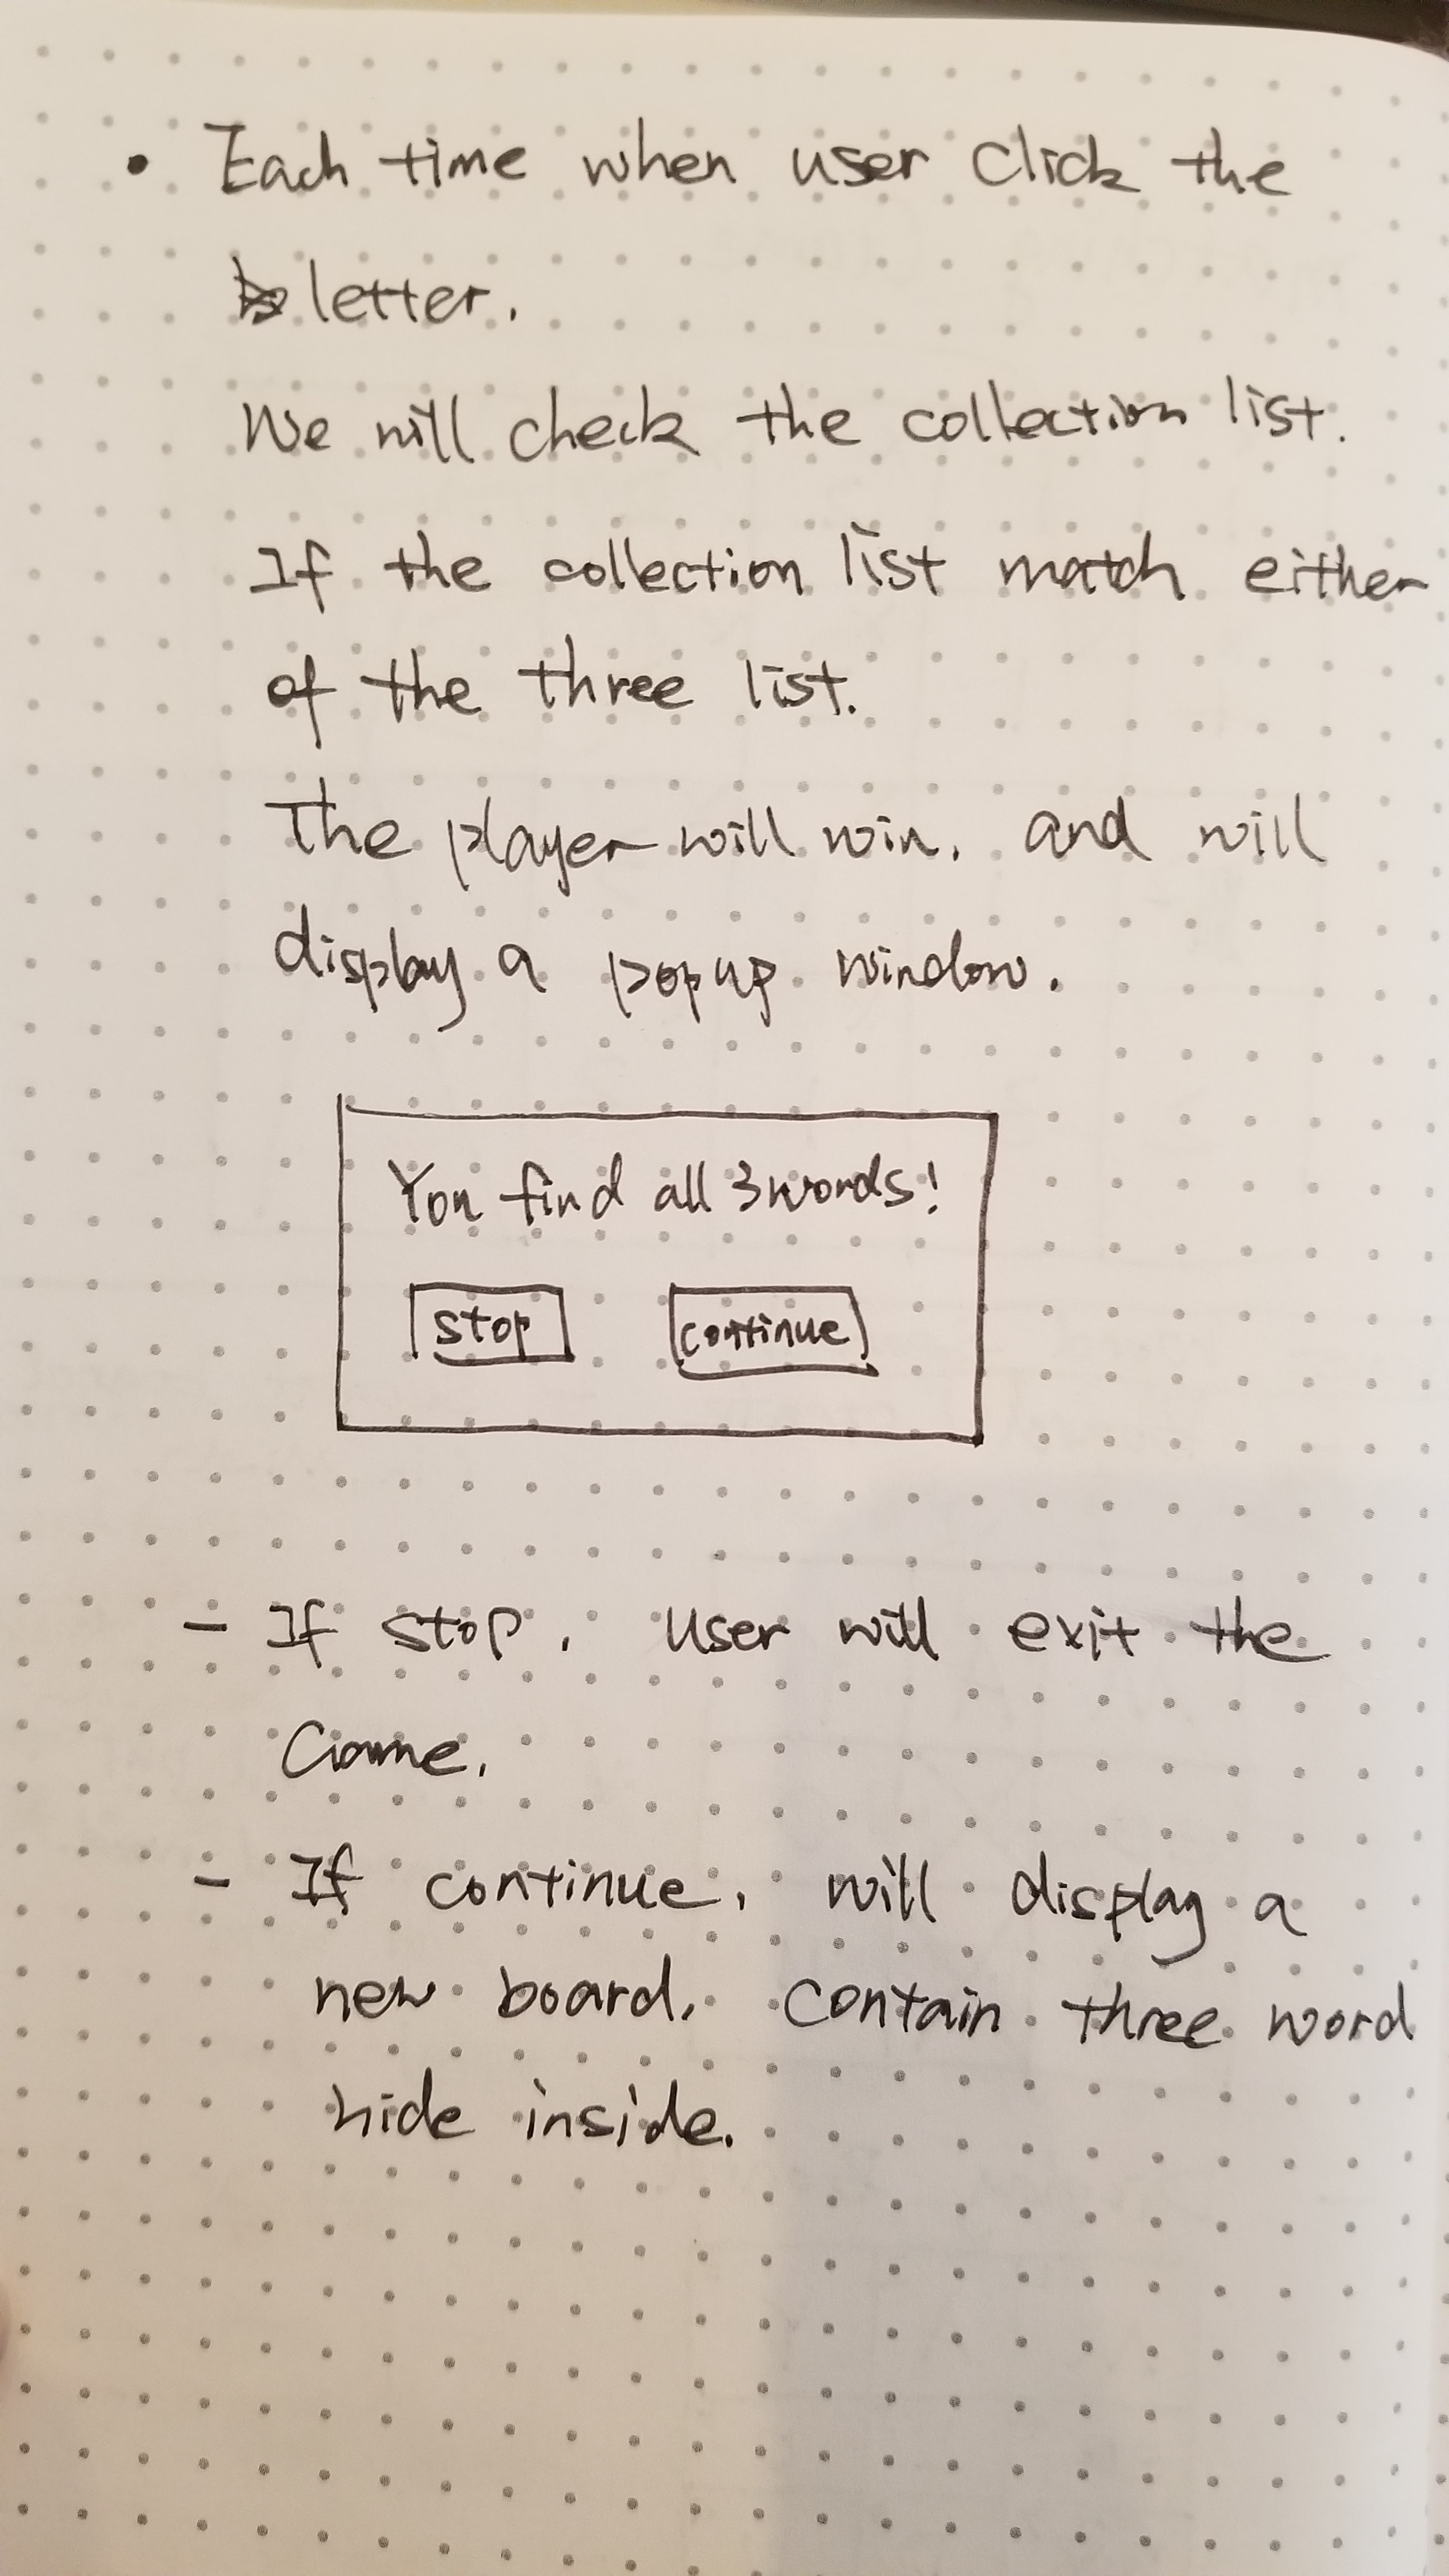 • Each time when user click the
letter.
We will check the collection list.
If the collection list match either
of the three list.
The player will win. and will
display a popup window.
You find all 3 words!
stop continue
- If stop, user will exit the
Game.
- If continue, will display a
new board, contain three word
hide inside.